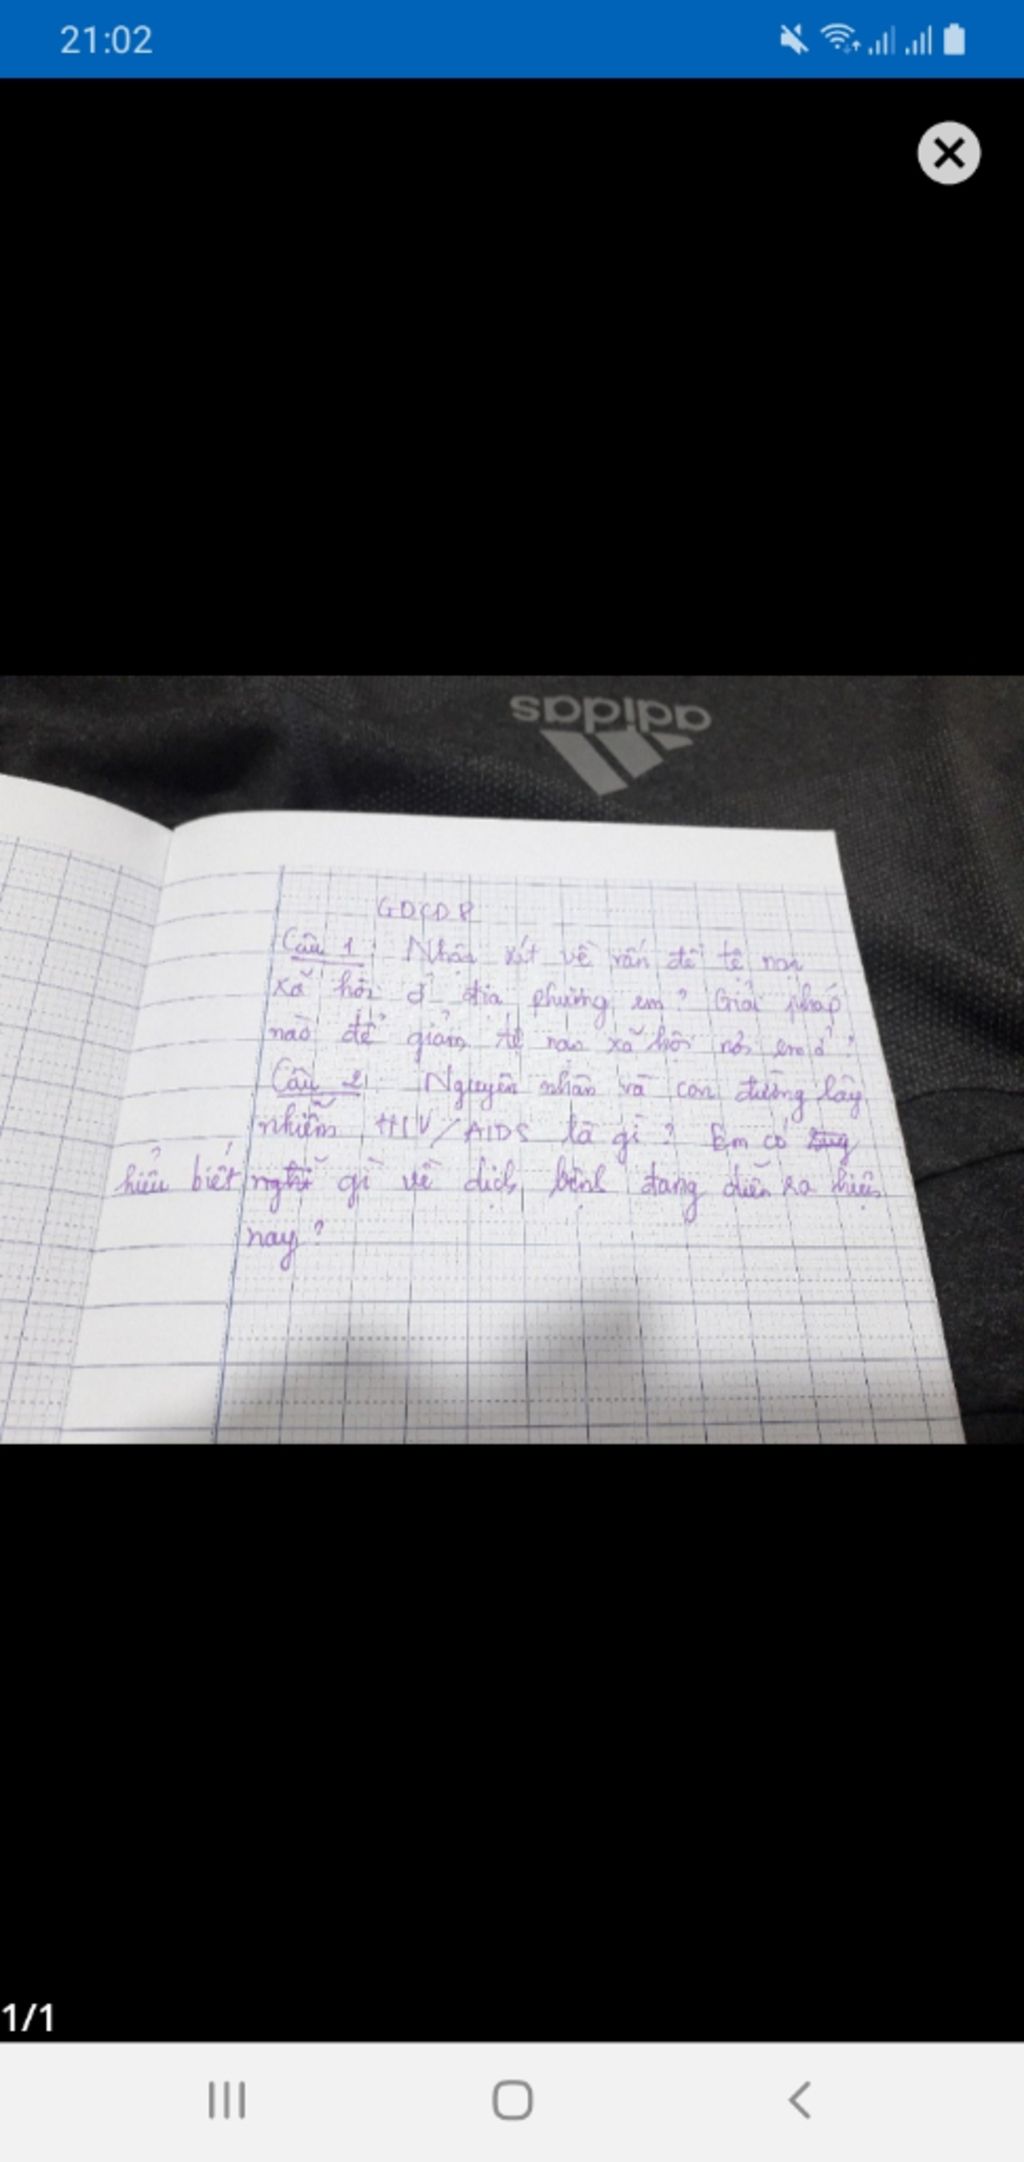 21:02
adidas
GDCD 8
Câu 1: Nhận xét về vấn đề tệ nạn
xã hội ở địa phương em? Giải pháp
nào để giảm tệ nạn xã hội nơi em ở?
Câu 2: Nguyên nhân và con đường lây
nhiễm HIV/AIDS là gì? Em có
hiểu biết gì về dịch bệnh đang diễn ra hiện
nay?
1/1